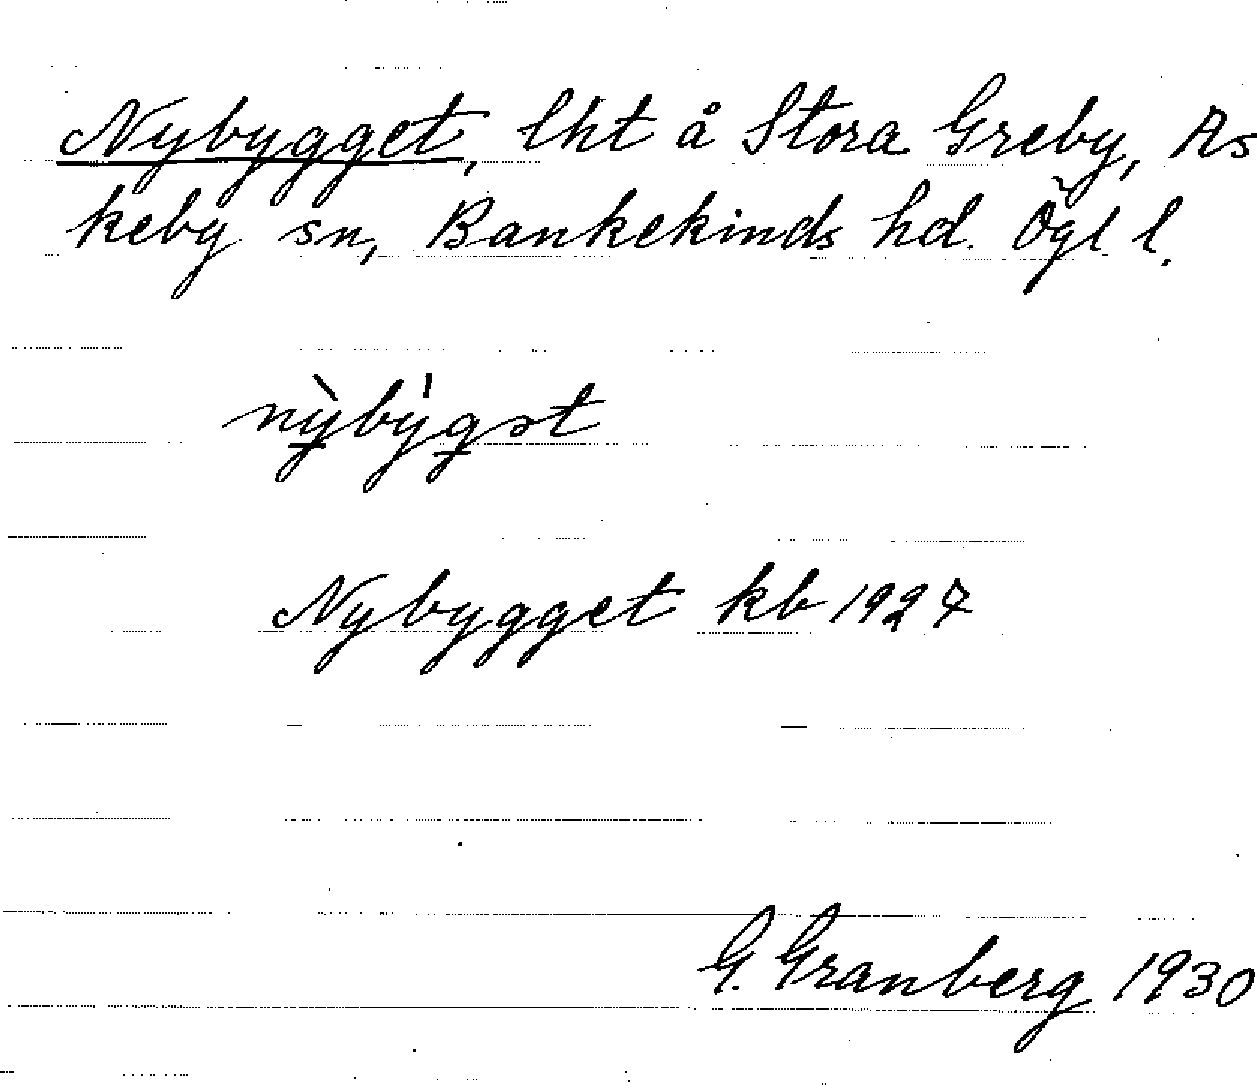 Nybygget, lht å Stora Greby, As
keby sn, Bankekinds hd. Ögl l.
nỳbýgət
Nybygget kb 1927
G. Granberg 1930